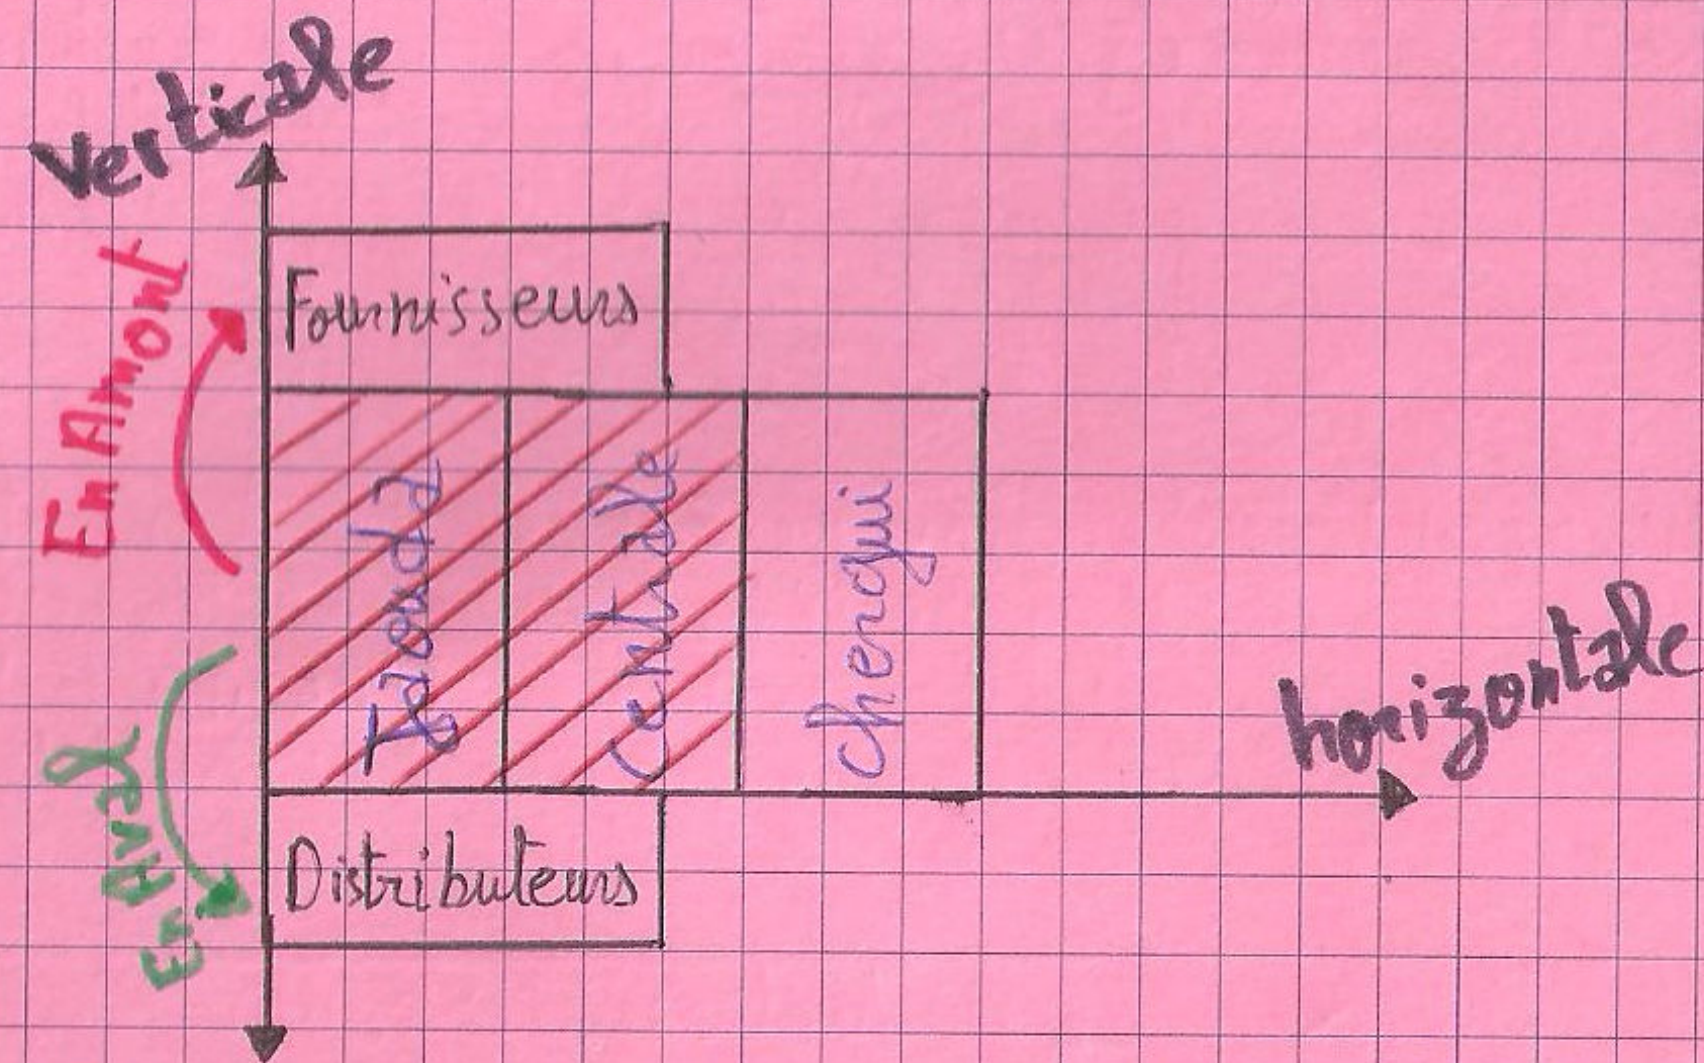 Verticale
En Amont
Fournisseurs
Jaouda
Centrale
Chergui
horizontale
En Aval
Distributeurs